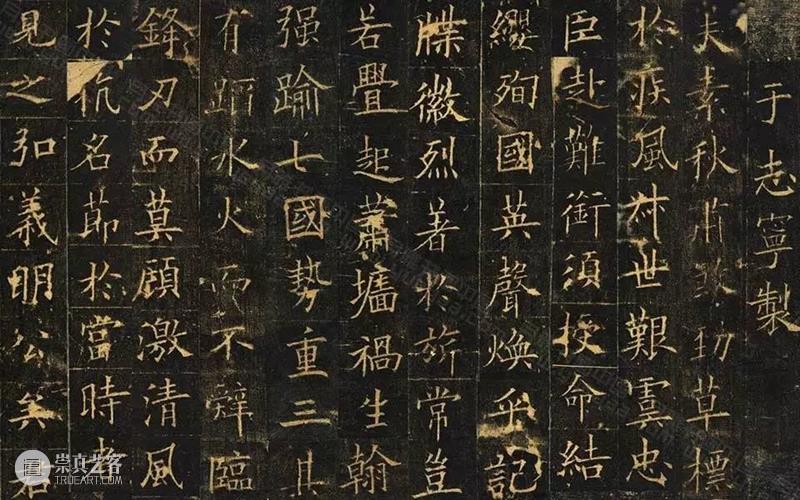 于志寧製
夫素秋肅煞勁草標
於疾風叔世艱虞忠
臣赴難銜須授命結
纓殉國英聲煥乎記
牒徽烈著於旂常豈
若舋起蕭墻禍生翰
强踰七國勢重三其
有蹈水火而不辭臨
鋒刃而莫顧激清風
於抗名節於當時者
見之弘義明公矣君
崇真艺客